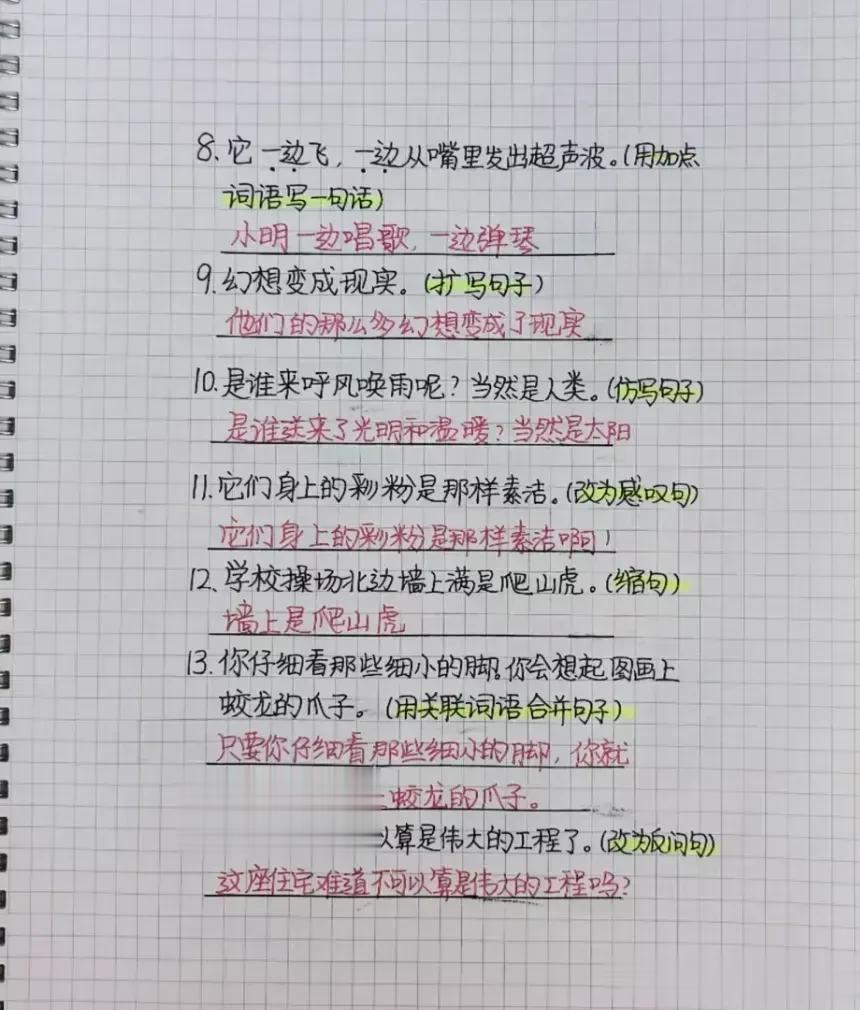 8.它一边飞,一边从嘴里发出超声波。(用加点
词语写一句话)
小明一边唱歌,一边弹琴
9.幻想变成现实。(扩写句子)
他们的那么多幻想变成了现实
10.是谁来呼风唤雨呢?当然是人类。(仿写句子)
是谁送来了光明和温暖?当然是太阳
11.它们身上的彩粉是那样素洁。(改为感叹句)
它们身上的彩粉是那样素洁啊!
12、学校操场北边墙上满是爬山虎。(缩句)
墙上是爬山虎
13.你仔细看那些细小的脚。你会想起图画上
蛟龙的爪子。(用关联词语合并句子)
只要你仔细看那些细小的脚,你就
蛟龙的爪子。
算是伟大的工程了。(改为反问句)
这座住宅难道不可以算是伟大的工程吗?